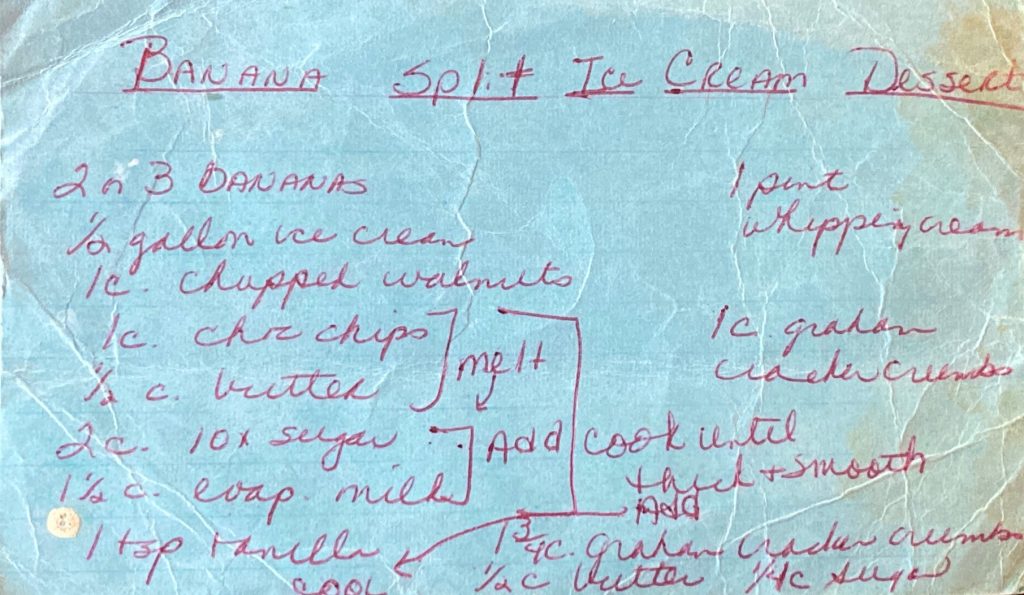 BANANA Split Ice CREAM Dessert
2 or 3 BANANAS
1 pint
whipping cream
½ gallon ice cream
1c. chopped walnuts
1c. choc chips
½ c. butter
melt
1c. graham
cracker crumbs
2c. 10x sugar
1½ c. evap. milk
Add
cook until
thick + smooth
Add
1 tsp vanilla
cool
1¾c. graham cracker crumbs
½c butter ¼c sugar